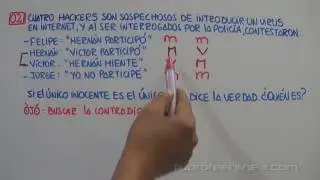 02 CUATRO HACKERS SON SOSPECHOSOS DE INTRODUCIR UN VIRUS
EN INTERNET, Y AL SER INTERROGADOS POR LA POLICÍA, CONTESTARON:
- FELIPE: "HERNÁN PARTICIPÓ" m m
- HERNÁN: "VÍCTOR PARTICIPÓ" m V
- VÍCTOR: "HERNÁN MIENTE" V m
- JORGE: "YO NO PARTICIPÉ" m m
SI EL ÚNICO INOCENTE ES EL ÚNICO DICE LA VERDAD ¿QUIÉN ES?
OJO: BUSCAR LA CONTRADIC
tuprofeenlinea.com